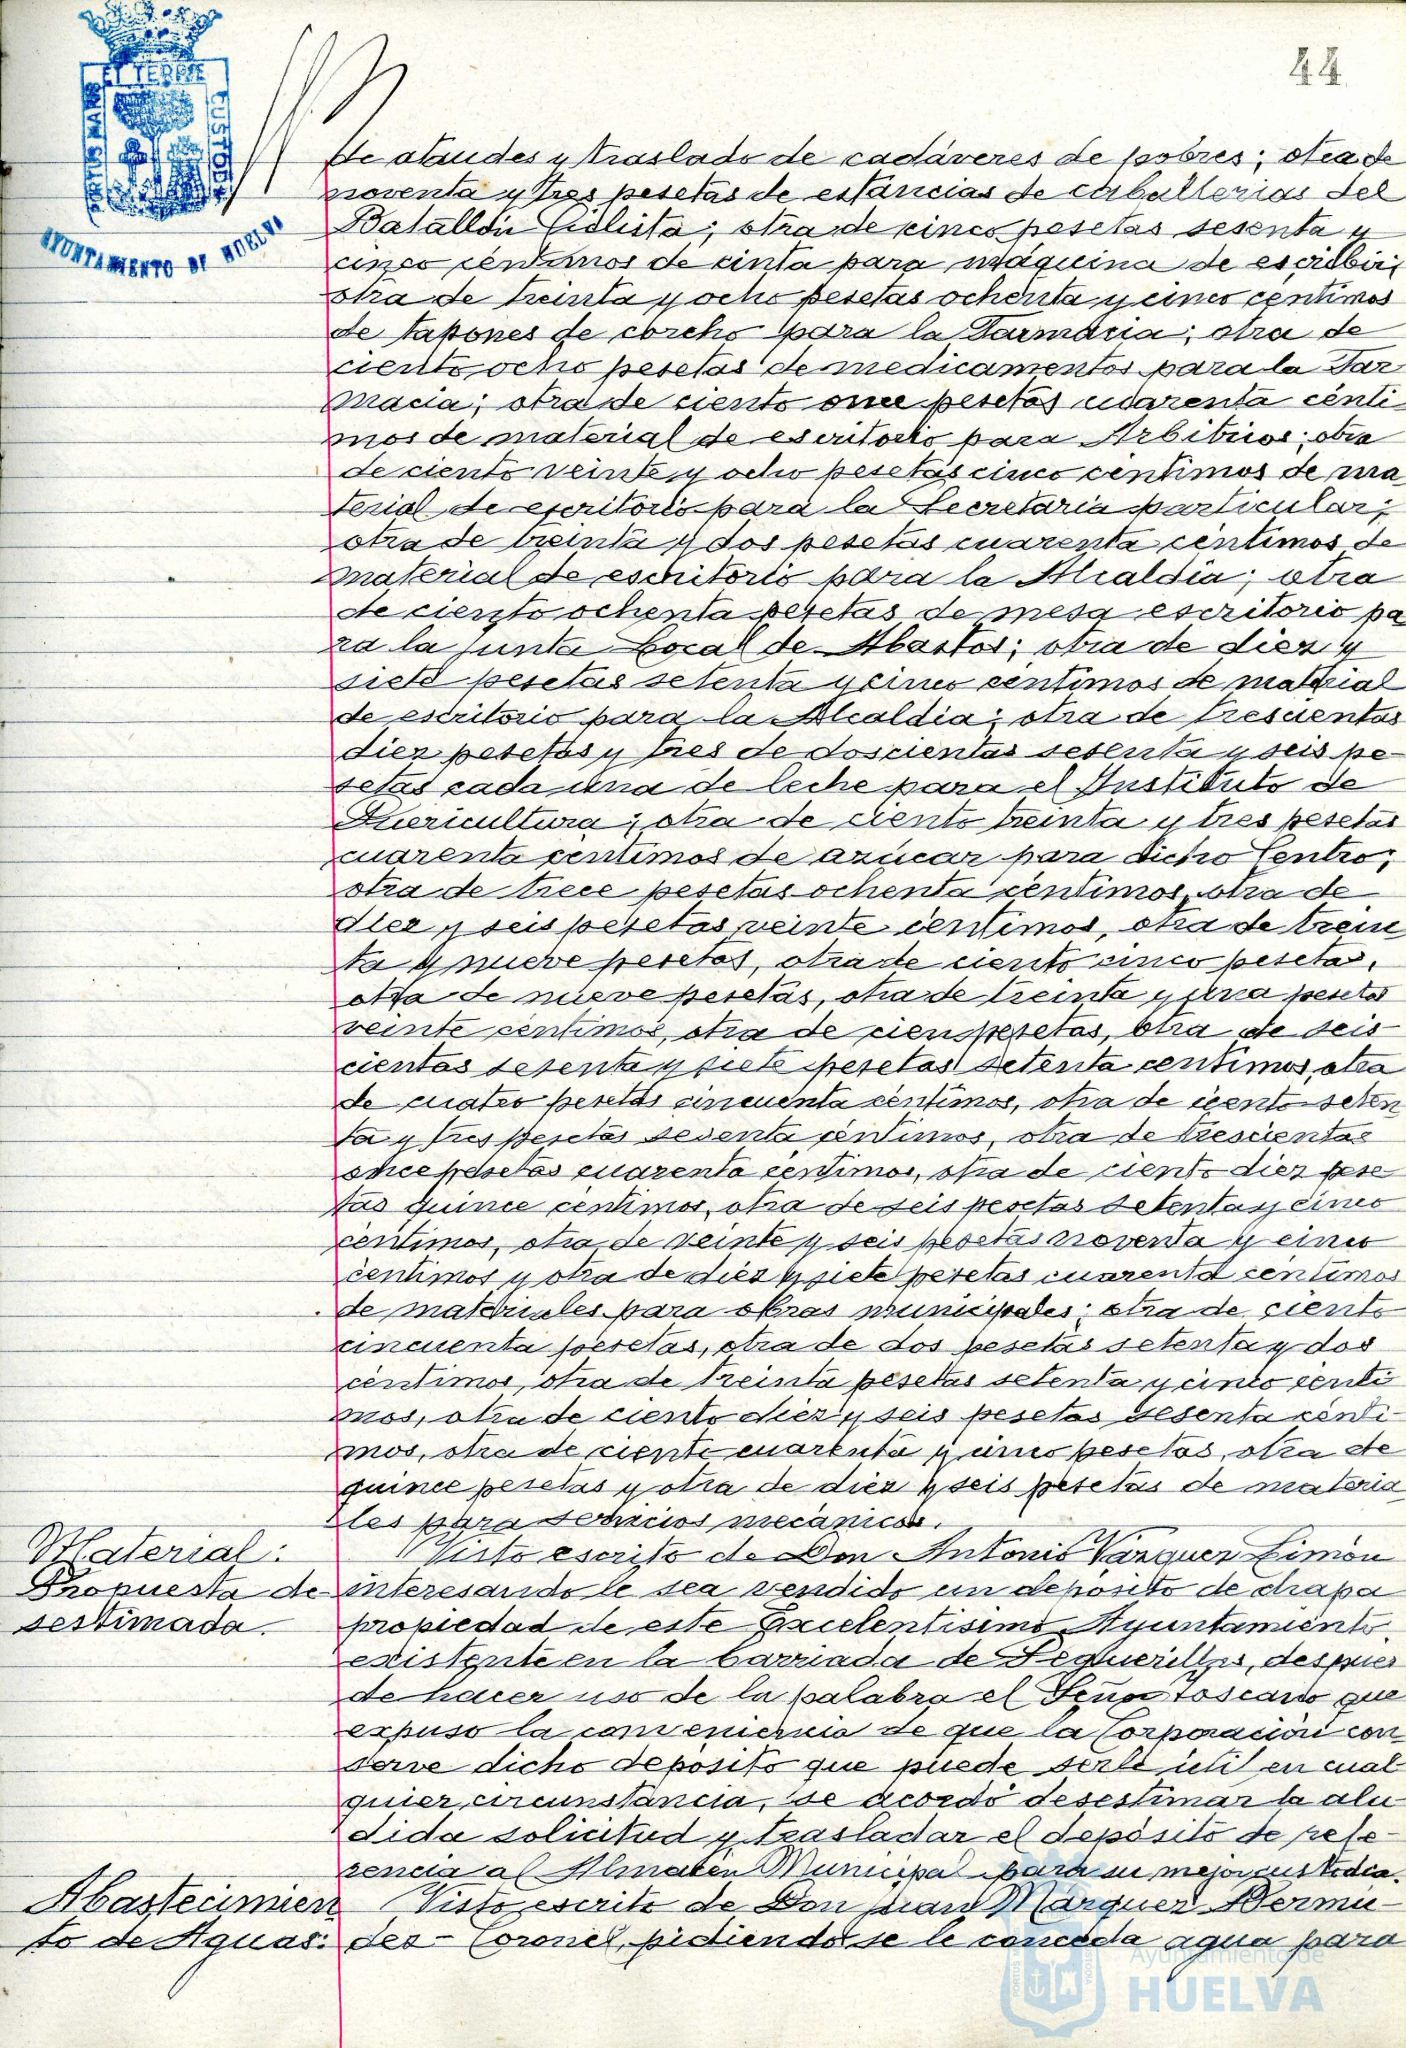 44
PORTUS MARIS ET TERRE CUSTODIA
AYUNTAMIENTO DE HUELVA
de ataudes y traslado de cadáveres de pobres; otra de
noventa y tres pesetas de estancias de caballerias del
Batallón Ciclista; otra de cinco pesetas sesenta y
cinco céntimos de cinta para máquina de escribir;
otra de treinta y ocho pesetas ochenta y cinco céntimos
de tapones de corcho para la Farmacia; otra de
ciento ocho pesetas de medicamentos para la Far
macia; otra de ciento once pesetas cuarenta cénti
mos de material de escritorio para Arbitrios; otra
de ciento veinte y ocho pesetas cinco céntimos de ma
terial de escritorio para la Secretaria particular;
otra de treinta y dos pesetas cuarenta céntimos de
material de escritorio para la Alcaldia; otra
de ciento ochenta pesetas de mesa escritorio pa
ra la Junta Local de Abastos; otra de diez y
siete pesetas setenta y cinco céntimos de material
de escritorio para la Alcaldia; otra de trescientas
diez pesetas y tres de doscientas sesenta y seis pe-
setas cada una de leche para el Instituto de
Puericultura; otra de ciento treinta y tres pesetas
cuarenta céntimos de azúcar para dicho Centro;
otra de trece pesetas ochenta céntimos, otra de
diez y seis pesetas veinte céntimos, otra de trein
ta y nueve pesetas, otra de ciento cinco pesetas,
otra de nueve pesetas, otra de treinta y una pesetas
veinte céntimos, otra de cien pesetas, otra de seis
cientas setenta y siete pesetas setenta centimos, otra
de cuatro pesetas cincuenta céntimos, otra de ciento seten
ta y tres pesetas sesenta céntimos, otra de trescientas
once pesetas cuarenta céntimos, otra de ciento diez pese
tas quince céntimos, otra de seis pesetas setenta y cinco
céntimos, otra de veinte y seis pesetas noventa y cinco
centimos y otra de diez y siete pesetas cuarenta centimos
de materiales para obras municipales; otra de ciento
cincuenta pesetas, otra de dos pesetas setenta y dos
céntimos, otra de treinta pesetas setenta y cinco cénti
mos, otra de ciento diez y seis pesetas sesenta cénti-
mos, otra de ciento cuarenta y cinco pesetas, otra de
quince pesetas y otra de diez y seis pesetas de materia
les para servicios mecánicos.
Material: Visto escrito de Don Antonio Vazquez Limón
Propuesta de interesando le sea vendido un depósito de chapa
sestimada. propiedad de este Excelentisimo Ayuntamiento
existente en la barriada de Peguerillas, despues
de hacer uso de la palabra el Señor Toscano que
expuso la conveniencia de que la Corporación con
serve dicho depósito que puede serle útil en cual
quier circunstancia, se acordó desestimar la alu
dida solicitud y trasladar el depósito de refe-
rencia al Almacén Municipal para su mejor custodia.
Abastecimien Visto escrito de Don Juan Márquez Bermu-
to de Aguas: dez-Coronel, pidiendo se le conceda agua para
Ayuntamiento de
HUELVA